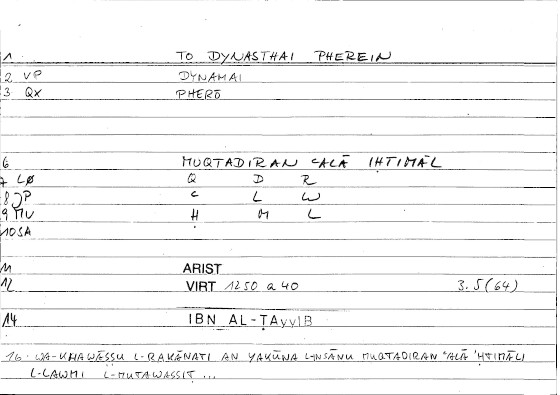 1 TO DYNASTHAI PHEREIN
2 VP DYNAMAI
3 QX PHERŌ
6 MUQTADIRAN ʿALĀ IHTIMĀL
7 LØ Q D R
8 JP ʿ L W
9 MU H M L
10 SA .
11 ARIST
12 VIRT 1250 a 40 3.5(64)
14 IBN AL-ṬAyyIB
16. WA-KHAWĀṢṢU L-RAKĀNATI AN YAKŪNA L-INSĀNU MUQTADIRAN ʿALĀ ḤTIMĀLI
L-LAWMI L-MUTAWASSIṬ ...